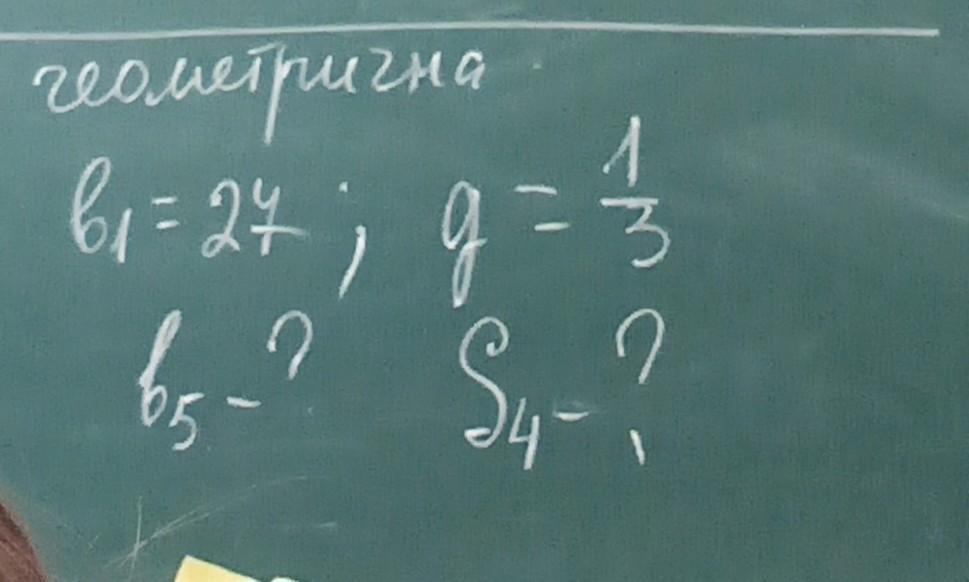 геометрична
b₁ = 27 ; q = 1/3
b₅ - ? S₄ - ?